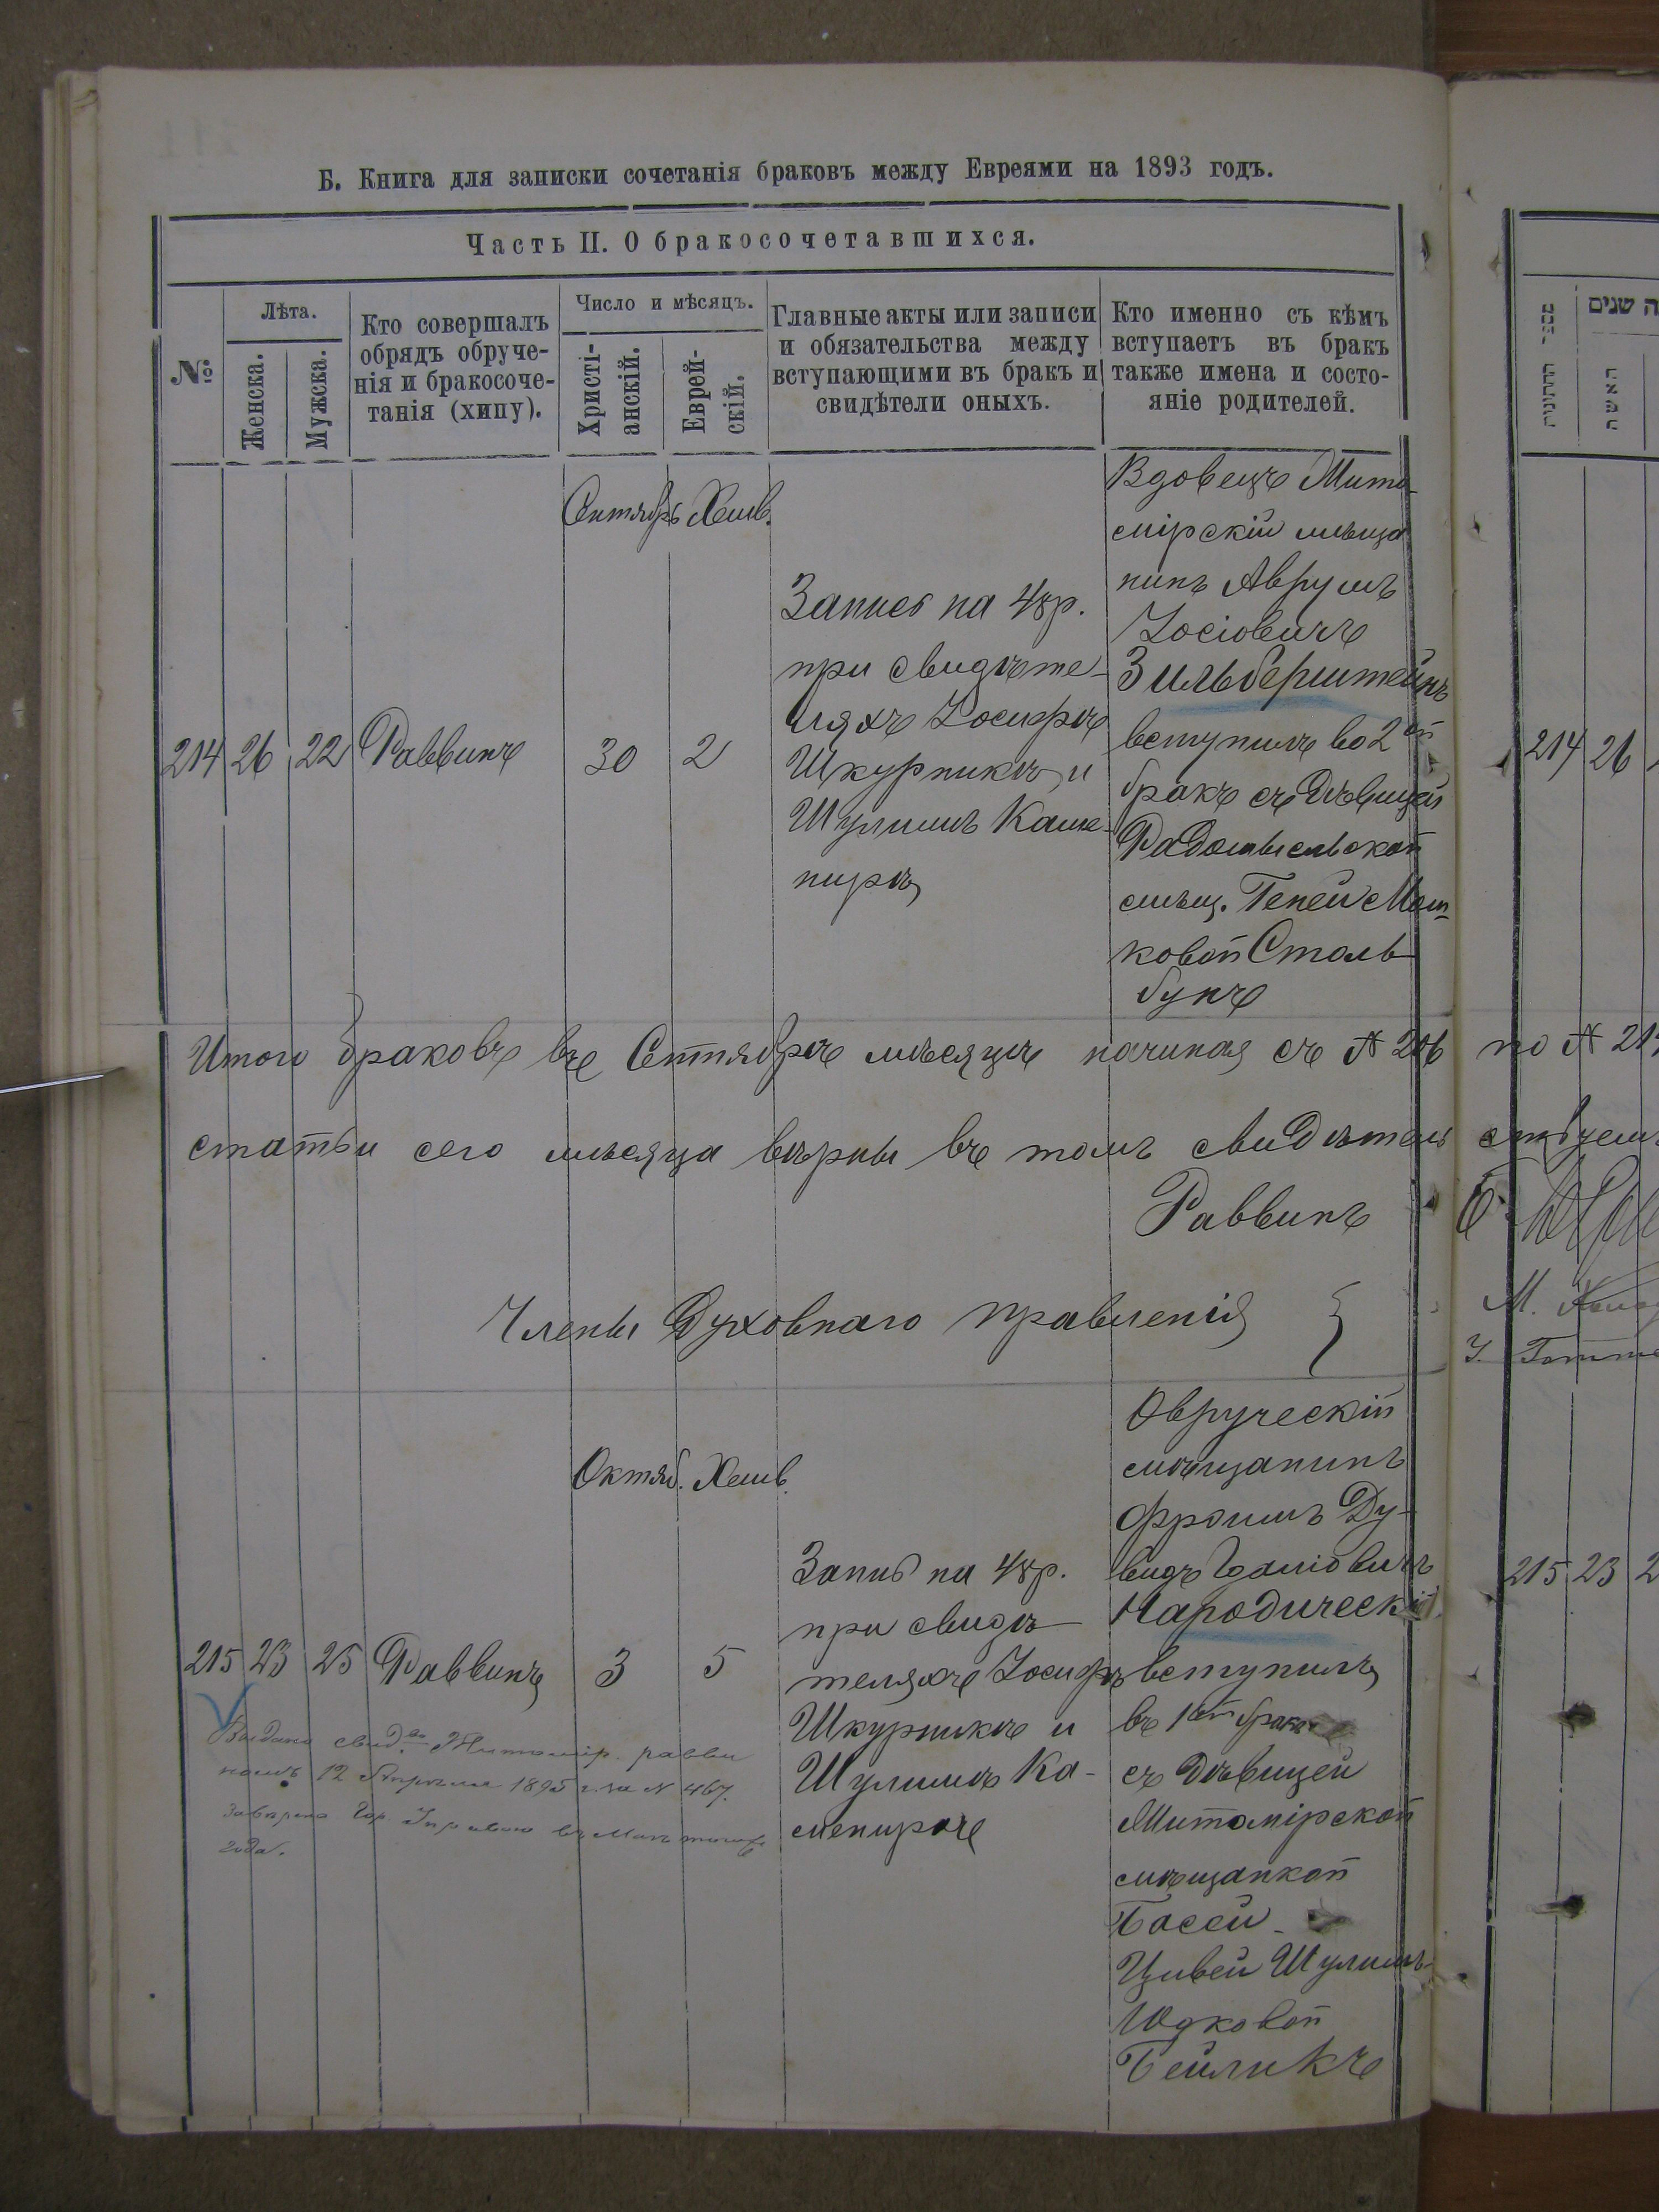 Б. Книга для записки сочетанія браковъ между Евреями на 1893 годъ.
Часть II. О бракосочетавшихся.
№
Лѣта.
Женска.
Мужска.
Кто совершалъ
обрядъ обруче-
нія и бракосоче-
танія (хипу).
Число и мѣсяцъ.
Христі-
анскій.
Еврей-
скій.
Главные акты или записи
и обязательства между
вступающими въ бракъ и
свидѣтели оныхъ.
Кто именно съ кѣмъ
вступаетъ въ бракъ
также имена и состо-
яніе родителей.
Сентябрь Хешв.
214 26 22 Раввинъ 30 2
Запись на 48 р.
при свидѣте-
ляхъ Іосифѣ
Шкурникѣ и
Шулимѣ Каме-
нирѣ
Вдовецъ Жито-
мірскій мѣща
нинъ Аврумъ
Іосіовичъ
Зильберштейнъ
вступилъ во 2ой
бракъ съ дѣвицей
Радомысльской
мѣщ. Геней Мош-
ковой Столь-
бунъ
Итого браковъ въ Сентябрѣ мѣсяцѣ начиная съ № 206 по № 214
статьи сего мѣсяца вѣрны въ томъ свидѣтель ствуемъ
Раввинъ
Члены Духовнаго правленія
Октяб. Хешв.
215 23 25 Раввинъ 3 5
Запись на 48 р.
при свидѣ-
теляхъ Іосифѣ
Шкурникѣ и
Шулимѣ Ка-
менирѣ
Овруческій
мѣщанинъ
Фроимъ Ду-
видъ
Народическій
вступилъ
въ 1ый бракъ
съ дѣвицей
Житомірской
мѣщанкой
Басей-
Цивей Шулимъ-
Юдковой
Бейликъ
Выдано свид.во Житомір. равви
номъ 12 Апрѣля 1895 г. за № 467.
года.
ספר החתונה
האשה
214 26
215 23 2